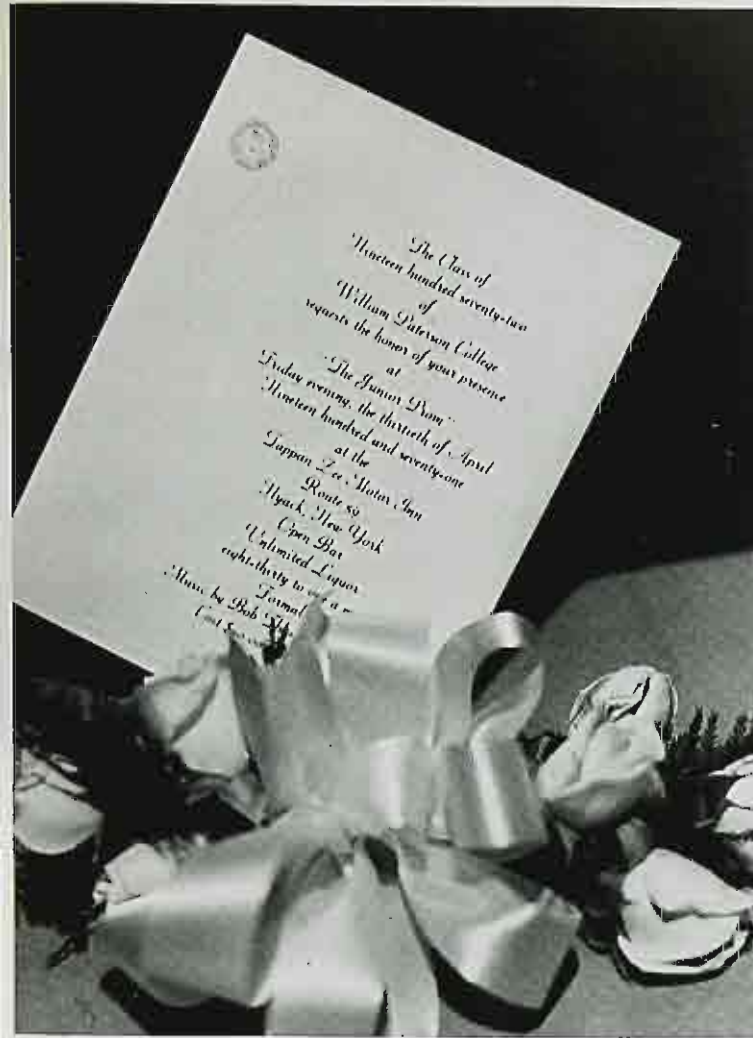 The Class of
Nineteen hundred seventy-two
of
William Paterson College
requests the honor of your presence
at
"The Junior Prom"
Friday evening, the thirtieth of April
Nineteen hundred and seventy-one
at the
Tappan Zee Motor Inn
Route 59
Nyack, New York
Open Bar
Unlimited Liquor
eight-thirty to
Formal
Music by Bob